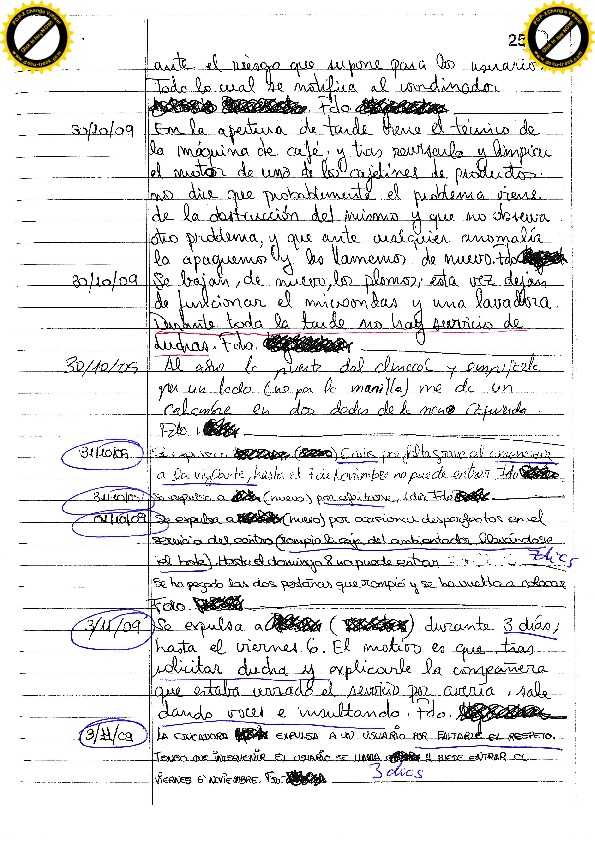 25
ante el riesgo que supone para los usuarios.
Todo lo cual se notifica al coordinador
Fdo
30/10/09 En la apertura de tarde viene el técnico de
la máquina de café, y tras revisarla y limpiar
el motor de uno de los cajetines de productos
nos dice que probablemente el problema viene
de la obstrucción del mismo y que no observa
otro problema, y que ante cualquier anomalía
la apaguemos y les llamemos de nuevo. Fdo
30/10/09 Se bajan, de nuevo, los plomos; esta vez dejan
de funcionar el microondas y una lavadora.
Durante toda la tarde no hay servicio de
duchas. Fdo.
30/10/09 Al abrir la puerta del
por un lado (no por la manilla) me da un
calambre en dos dedos de la mano izquierda.
Fdo
31/10/09
a la vigilante, hasta el 7 de noviembre no puede entrar Fdo
31/10/09 Se expulsa a (nuevo) por 1 día Fdo
01/10/09 Se expulsa a (nuevo) por ocasionar desperfectos en el
servicio del centro (rompía la caja del ambientador llevándose
el bote). Hasta el domingo 8 no puede entrar 7 dias
Se ha pegado las dos pestañas que rompió y se ha vuelto a colocar
Fdo.
3/11/09 Se expulsa a ( ) durante 3 días,
hasta el viernes 6. El motivo es que tras
solicitar ducha y explicarle la compañera
que estaba cerrado el servicio por avería, sale
dando voces e insultando. Fdo.
3/11/09 LA EDUCADORA EXPULSA A UN USUARIO POR FALTARLE EL RESPETO.
TENGO QUE INTERVENIR EL USUARIO SE LLAMA Y PUEDE ENTRAR EL
VIERNES 6 NOVIEMBRE. FDO: 3 dias